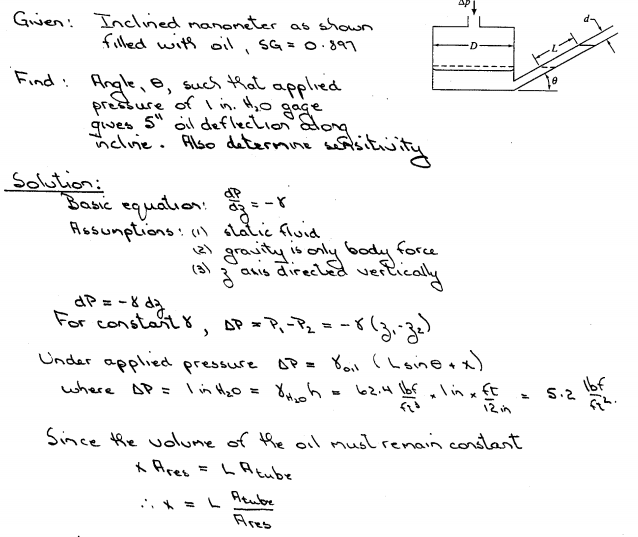 Given: Inclined manometer as shown
filled with oil, SG = 0.897
Δp
D
L
d
θ
Find: Angle, θ, such that applied
pressure of 1 in. H₂O gage
gives 5" oil deflection along
incline. Also determine sensitivity
Solution:
Basic equation: dP/dz = -γ
Assumptions: (1) static fluid
(2) gravity is only body force
(3) z axis directed vertically
dP = -γ dz
For constant γ, ΔP = P₁-P₂ = -γ(z₁-z₂)
Under applied pressure ΔP = γoil (L sinθ + x)
where ΔP = 1 in H₂O = γH₂O h = 62.4 lbf/ft³ × 1 in × ft/12 in = 5.2 lbf/ft².
Since the volume of the oil must remain constant
x Ares = L Atube
∴ x = L Atube/Ares